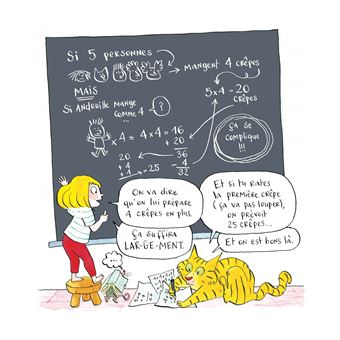 Si 5 personnes
mangent 4 crêpes
MAIS
5x4=20
crêpes
Si Andouille mange
comme 4
?
x4 = 4x4 = 16
+ 20
36
- 4
32
20
+ 4
+ 1 = 25
ça se
complique
!!!
On va dire
qu'on lui prépare
4 crêpes en plus.
ça suffira
LAR-GE-MENT.
Et si tu rates
la première crêpe
(ça va pas louper),
on prévoit
25 crêpes...
Et on est bons là.
...